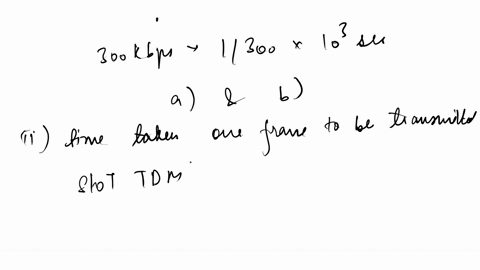 300kbps → 1/300 × 10³ sec
a) & b)
ii) time taken one frame to be transmitted
Slot TDM